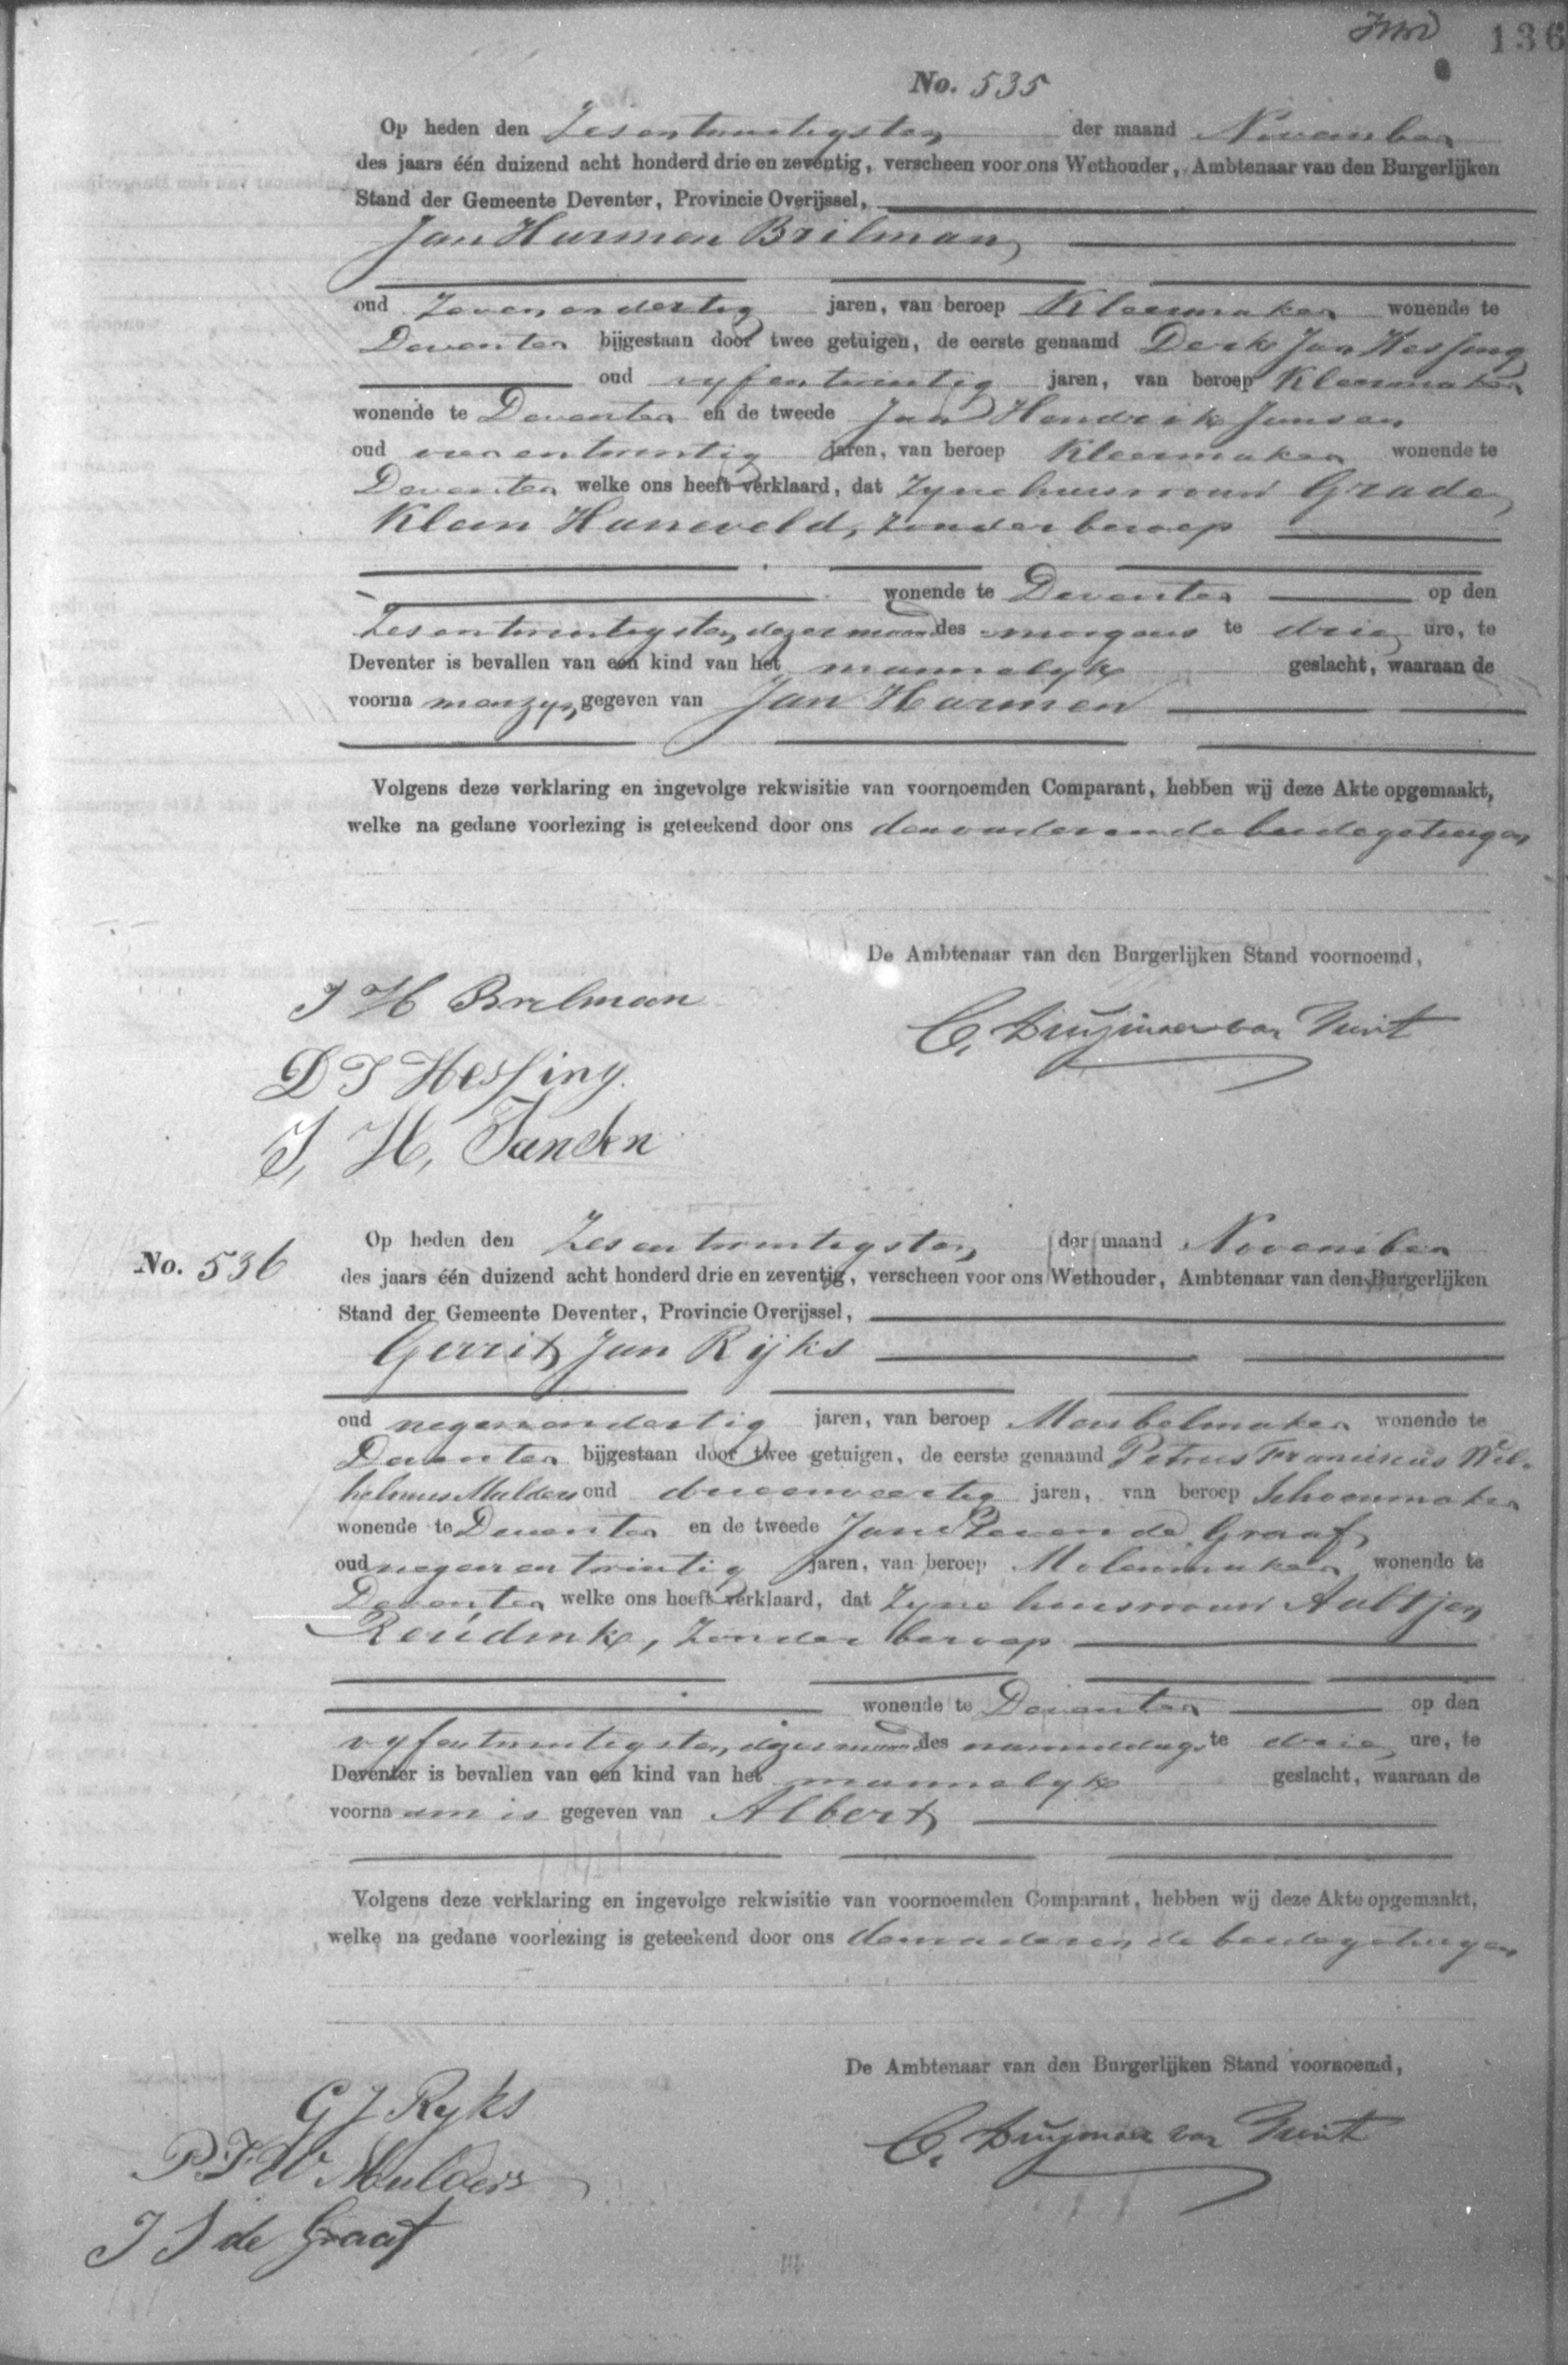 136
No. 535
Op heden den Zesentwintigsten der maand November
des jaars één duizend acht honderd drie en zeventig, verscheen voor ons Wethouder, Ambtenaar van den Burgerlijken
Stand der Gemeente Deventer, Provincie Overijssel,
Jan Harmen Brilman
oud Zevenendertig jaren, van beroep Kleermaker wonende te
Deventer bijgestaan door twee getuigen, de eerste genaamd Derk Jan Hessing
oud vyfentwintig jaren, van beroep Kleermaker
wonende te Deventer en de tweede Jan Hendrik Jansen
oud vierentwintig jaren, van beroep Kleermaker wonende te
Deventer welke ons heeft verklaard, dat Zyne huisvrouw Grada
Klein Haneveld, zonder beroep
wonende te Deventer op den
Zesentwintigsten dezer maand des morgens te drie ure, te
Deventer is bevallen van een kind van het mannelyk geslacht, waaraan de
voornamen zyn gegeven van Jan Harmen
Volgens deze verklaring en ingevolge rekwisitie van voornoemden Comparant, hebben wij deze Akte opgemaakt,
welke na gedane voorlezing is geteekend door ons den vader en de beide getuigen
De Ambtenaar van den Burgerlijken Stand voornoemd,
J H Brilman
C. Duymaer van Twist
D J Hessing
J, H, Jansen
No. 536
Op heden den Zesentwintigsten der maand November
des jaars één duizend acht honderd drie en zeventig, verscheen voor ons Wethouder, Ambtenaar van den Burgerlijken
Stand der Gemeente Deventer, Provincie Overijssel,
Gerrit Jan Rijks
oud negenendertig jaren, van beroep Meubelmaker wonende te
Deventer bijgestaan door twee getuigen, de eerste genaamd Petrus Franciscus Wil-
helmus Mulders oud drieenveertig jaren, van beroep Schoenmaker
wonende te Deventer en de tweede Jan Steven de Graaf
oud negenentwintig jaren, van beroep Molenmaker wonende te
Deventer welke ons heeft verklaard, dat Zyne huisvrouw Aaltjen
Reúdink, zonder beroep
wonende te Deventer op den
vyfentwintigsten dezer maand des namiddags te drie ure, te
Deventer is bevallen van een kind van het mannelyk geslacht, waaraan de
voornaam is gegeven van Albert
Volgens deze verklaring en ingevolge rekwisitie van voornoemden Comparant, hebben wij deze Akte opgemaakt,
welke na gedane voorlezing is geteekend door ons den vader en de beide getuigen
De Ambtenaar van den Burgerlijken Stand voornoemd,
G J Ryks
C. Duymaer van Twist
P. F. W Mulders
J S de Graaf